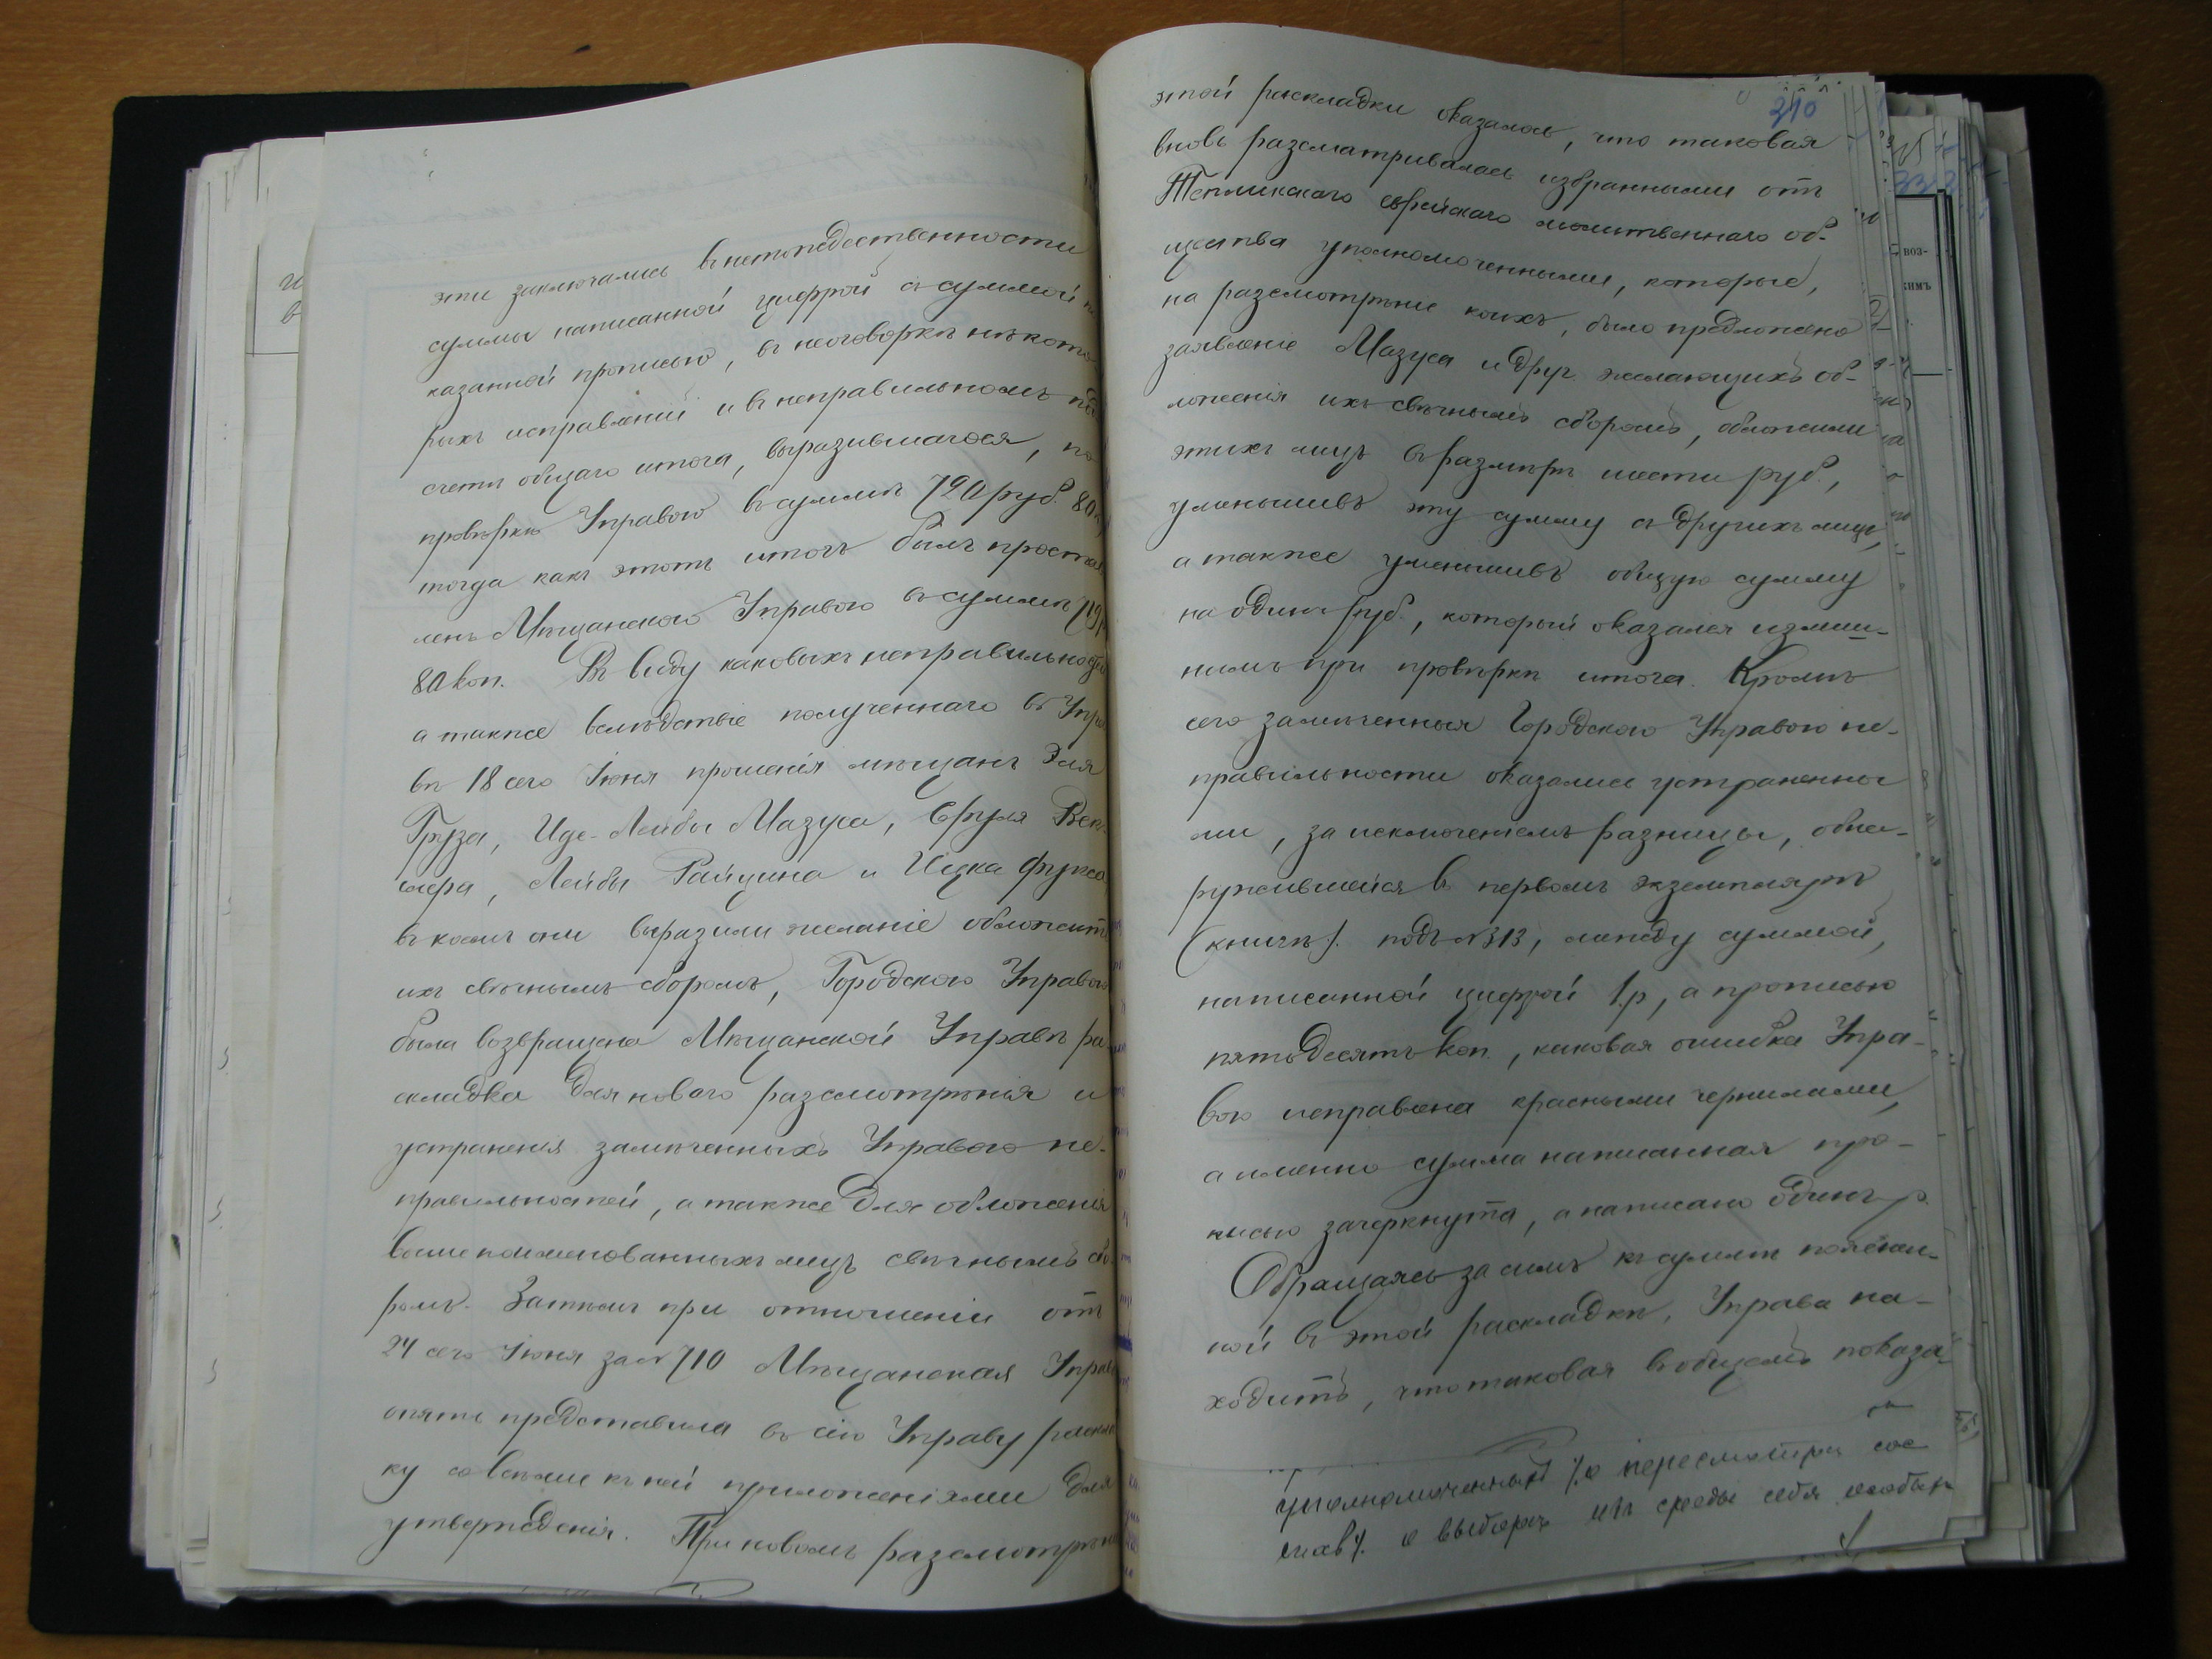 эти заключались в нетождественности
суммы написанной цифрой съ суммой
казанной прописью, въ неоговоркѣ нѣкото
рыхъ исправленій и въ неправильномъ
счетѣ общаго итога, выразившагося, по
провѣркѣ Управою въ суммѣ 720 руб. 80
тогда какъ этотъ итогъ былъ простав
ленъ Мѣщанскою Управою въ суммѣ 719
80 коп. Въ виду каковыхъ неправильностей
а также вслѣдствіе полученнаго въ Упра
вѣ 18 сего Іюня прошенія мѣщанъ Эля
Груза, Иде-Лейбы Мазуса, Сруля
Лейбы Райцина и Ицка Фукса
въ коемъ они выразили желаніе обложить
ихъ свѣчнымъ сборомъ, Городскою Управою
была возвращена Мѣщанской Управѣ ра
складка для новаго разсмотрѣнія и
устраненія замѣченныхъ Управою не-
правильностей, а также для обложенія
вышепоименованныхъ лицъ свѣчнымъ сбо
ромъ. Затѣмъ при отношеніи отъ
24 сего Іюня за № 710 Мѣщанская Упра
опять представила въ сію Управу раскла
ку со всѣми къ ней приложеніями для
утвержденія. При новомъ разсмотрѣніи
210
этой раскладки оказалось, что таковая
вновь разсматривалась избранными отъ
Тепликскаго еврейскаго молитвеннаго об-
щества уполномоченными, которые,
на разсмотрѣніе коихъ, было предложено
заявленіе Мазуса и друг. желающихъ об-
ложенія ихъ свѣчнымъ сборомъ, обложили
этихъ лицъ въ размѣрѣ шести руб.,
уменьшивъ эту сумму съ другихъ лицъ,
а также уменьшивъ общую сумму
на одинъ руб., который оказался излиш-
нимъ при провѣркѣ итога. Кромѣ
сего замѣченныя Городскою Управою не-
правильности оказались устраненны
ми, за исключеніемъ разницы, обна-
ружившейся въ первомъ экземплярѣ
(книгѣ). подъ № 313, между суммой,
написанной цифрой 1.р, а прописью
пятьдесятъ коп., каковая ошибка Упра-
вою исправлена красными чернилами,
а именно сумма написанная про-
писью зачеркнута, а написано одинъ р.
Обращаясь за симъ къ суммѣ
ной въ этой раскладкѣ, Управа на-
ходитъ, что таковая въ общемъ показа-
уполномоченныхъ о пересмотра
о выборѣ изъ среды себя особыхъ
воз-
кимъ